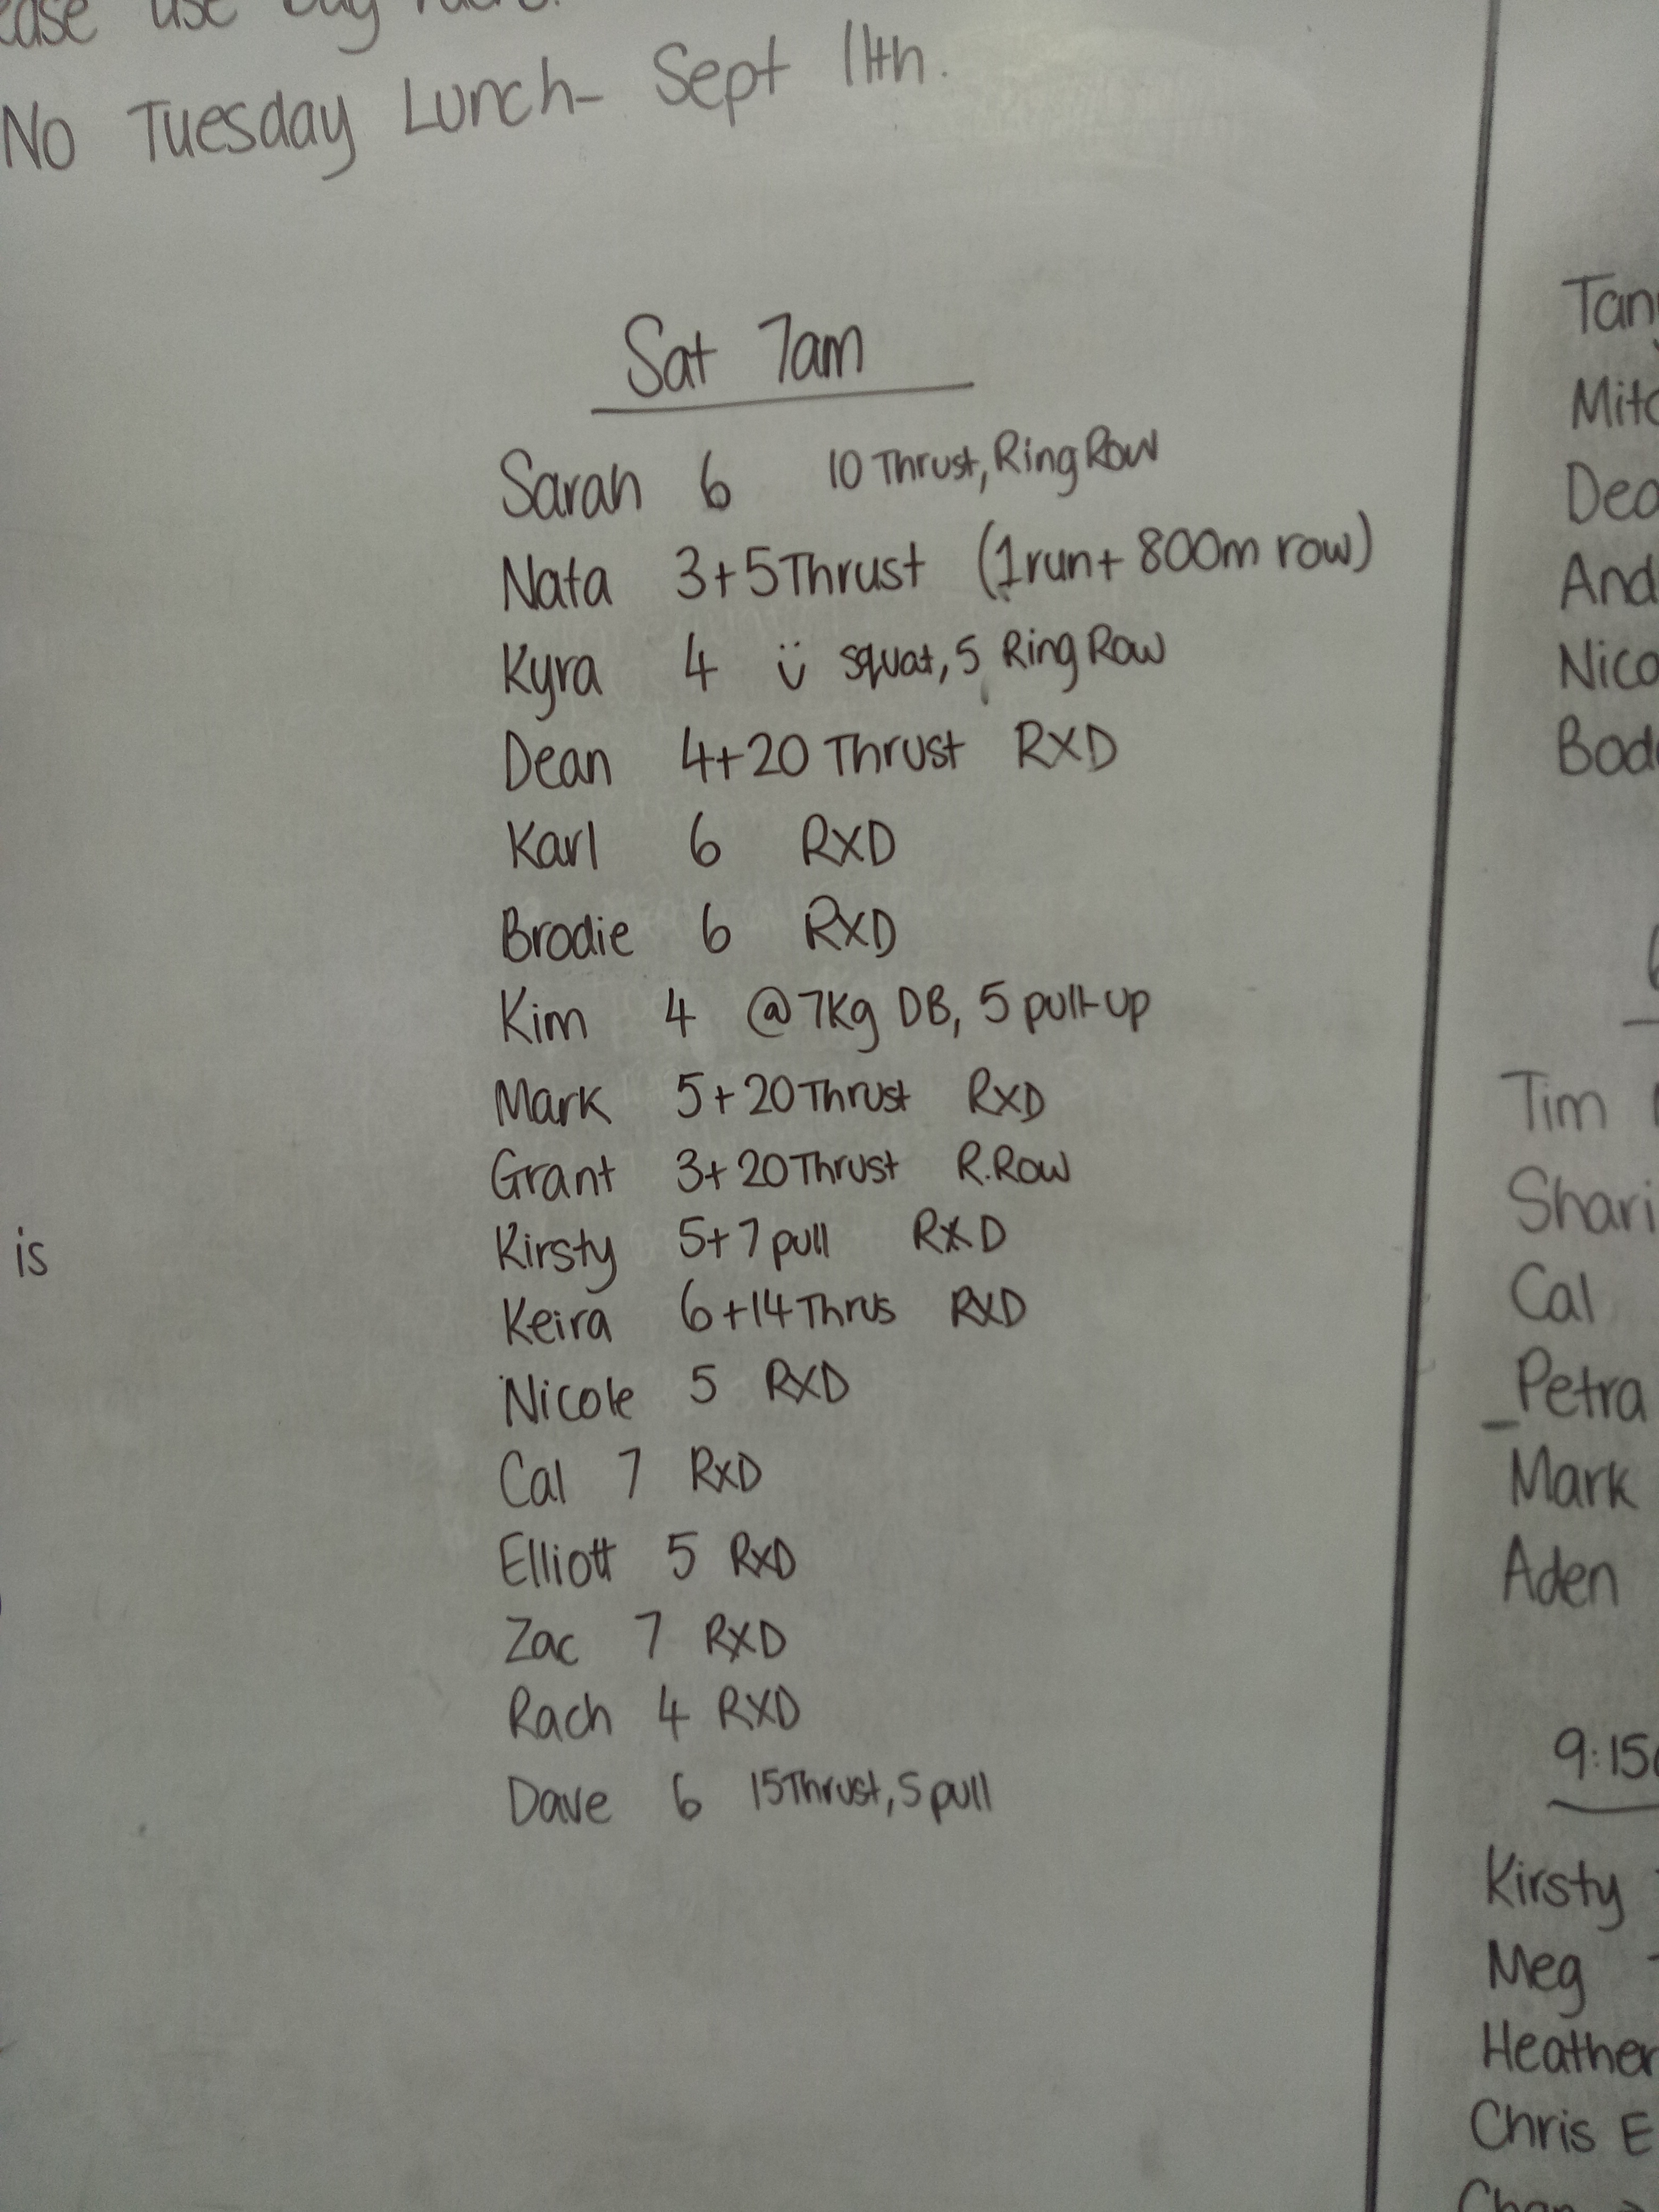 use
No Tuesday Lunch- Sept 11th.
Sat 7am
Sarah 6 10 Thrust, Ring Row
Nata 3+5 Thrust (1 run + 800m row)
Kyra 4 ü squat, 5 Ring Row
Dean 4+20 Thrust RXD
Karl 6 RXD
Brodie 6 RXD
Kim 4 @7Kg DB, 5 pull-up
Mark 5+20 Thrust RXD
Grant 3+20 Thrust R.Row
Kirsty 5+7 pull RXD
Keira 6+14 Thrus RXD
Nicole 5 RXD
Cal 7 RXD
Elliott 5 RXD
Zac 7 RXD
Rach 4 RXD
Dave 6 15 Thrust, 5 pull
is
Tim
Shari
Cal
Petra
Mark
Aden
9:15
Kirsty
Meg
Heather
Chris E